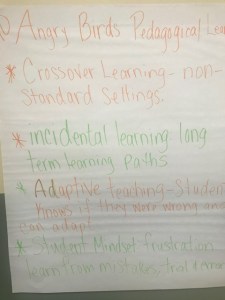 Angry Birds Pedagogical Lear
* Crossover Learning - non-
Standard Settings.
* incidental learning long
term learning paths
* Adaptive teaching - Studen
Knows if they were wrong and
can adapt
* Student Mindset frustration
learn from mistakes, trial & error